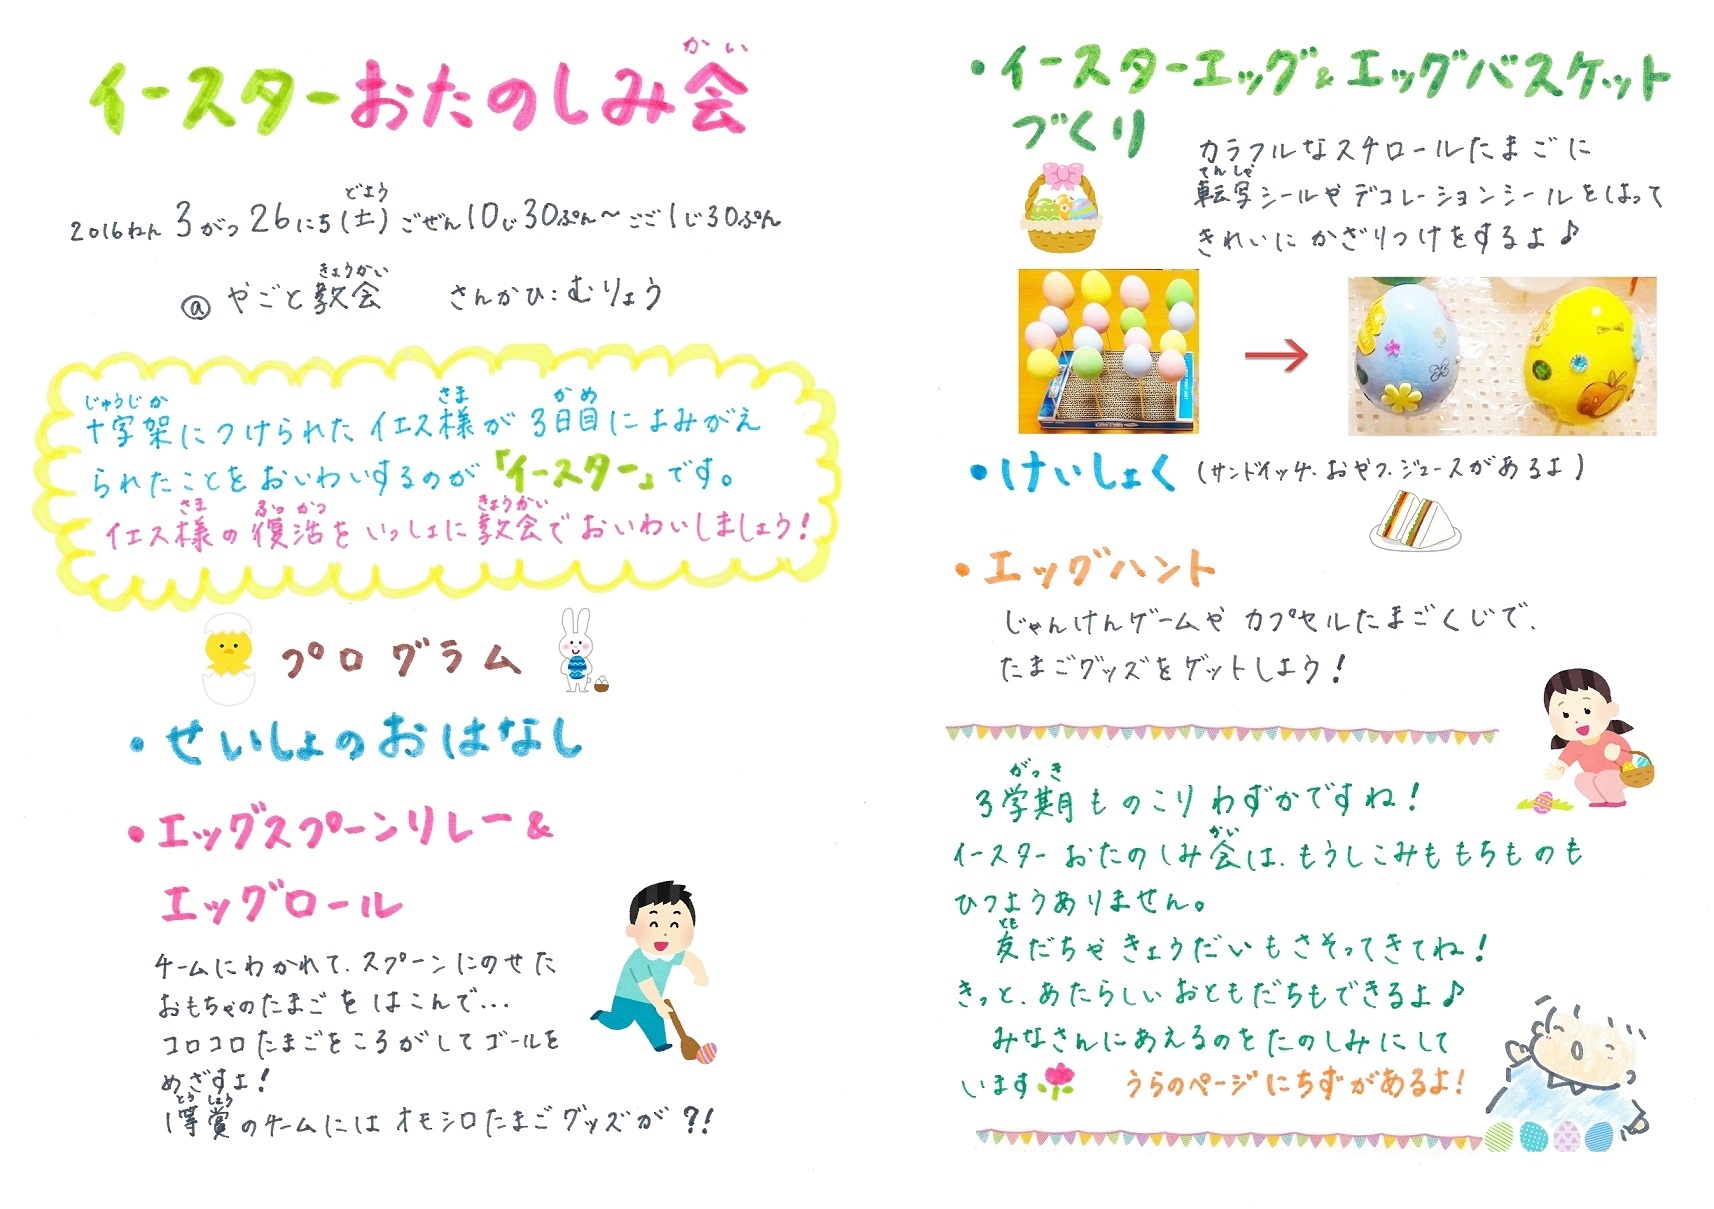 かい
イースターおたのしみ会
どよう
2016ねん 3がつ26にち(土) ごぜん10じ30ぷん〜ごご1じ30ぷん
きょうかい
@ やごと教会 さんかひ:むりょう
じゅうじか さま かめ
十字架につけられたイエス様が3日目によみがえ
られたことをおいわいするのが「イースター」です。
さま ふっかつ きょうかい
イエス様の復活をいっしょに教会でおいわいしましょう!
プログラム
・せいしょのおはなし
・エッグスプーンリレー&
エッグロール
チームにわかれて、スプーンにのせた
おもちゃのたまごをはこんで...
コロコロたまごをころがしてゴールを
めざすよ!
とうしょう
1等賞のチームにはオモシロたまごグッズが?!
・イースターエッグ&エッグバスケット
づくり
カラフルなスチロールたまごに
てんしゃ
転写シールやデコレーションシールをはって
きれいにかざりつけをするよ♪
・けいしょく(サンドイッチ、おやつ、ジュースがあるよ)
・エッグハント
じゃんけんゲームやカプセルたまごくじで、
たまごグッズをゲットしよう!
がっき
3学期ものこりわずかですね!
かい
イースターおたのしみ会は、もうしこみももちものも
ひつようありません。
とも
友だちやきょうだいもさそってきてね!
きっと、あたらしいおともだちもできるよ♪
みなさんにあえるのをたのしみにして
います うらのページにちずがあるよ!